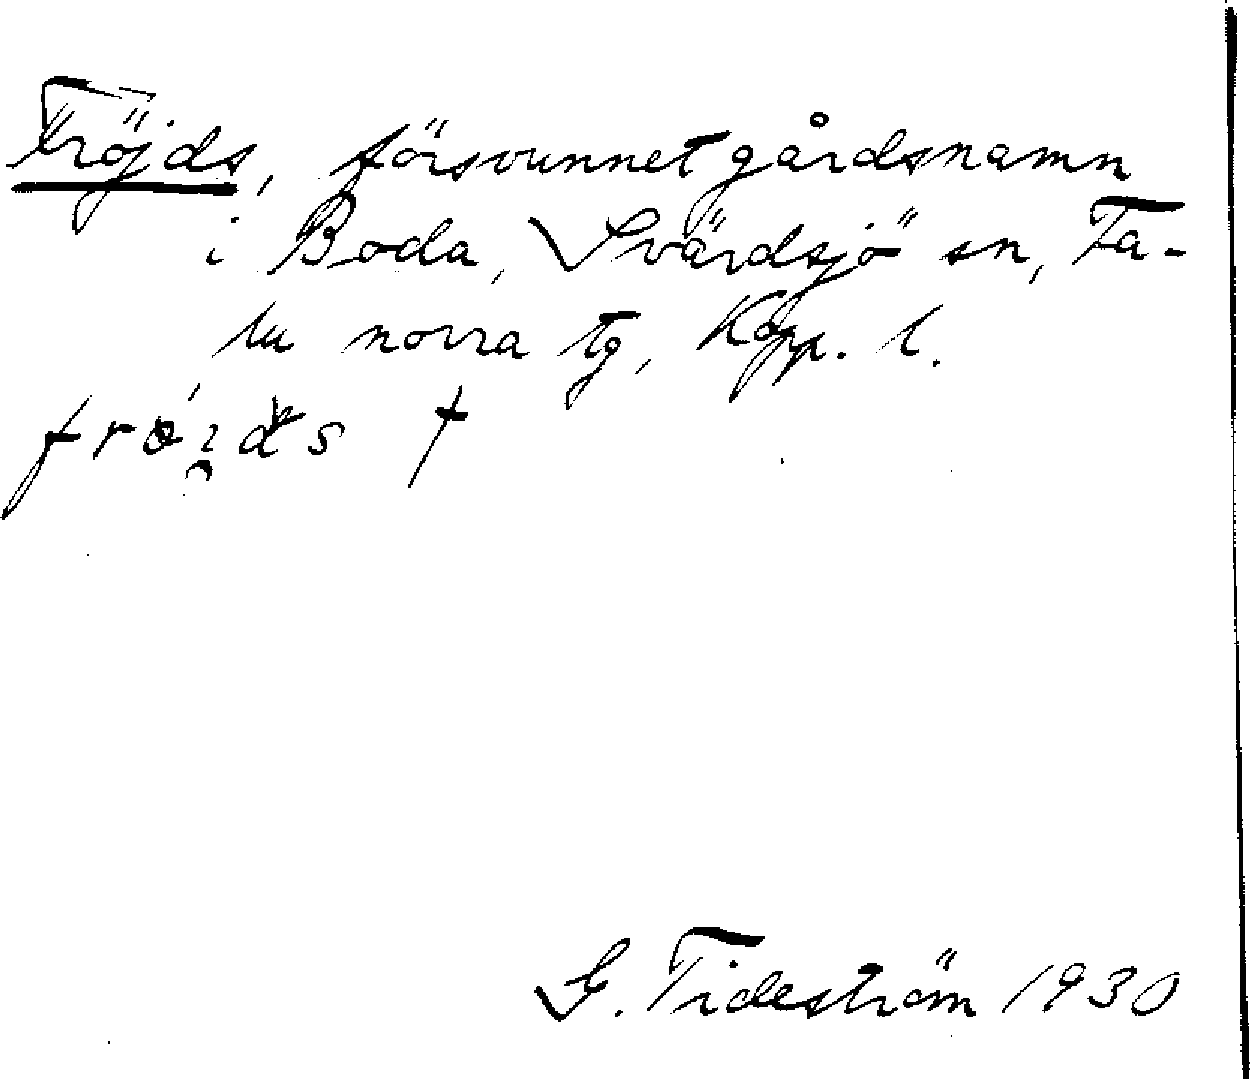 Fröjds, försvunnet gårdsnamn
i Boda, Svärdsjö sn, Fa-
lu norra tg, Kopp. l.
frö́i̯ds †
G. Tideström 1930